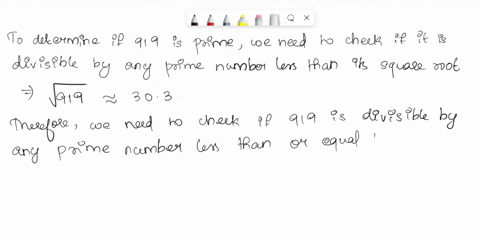 To determine if 919 is prime, we need to check if it is
divisible by any prime number less than its square root
⇒ √919 ≈ 30.3.
Therefore, we need to check if 919 is divisible by
any prime number less than or equal